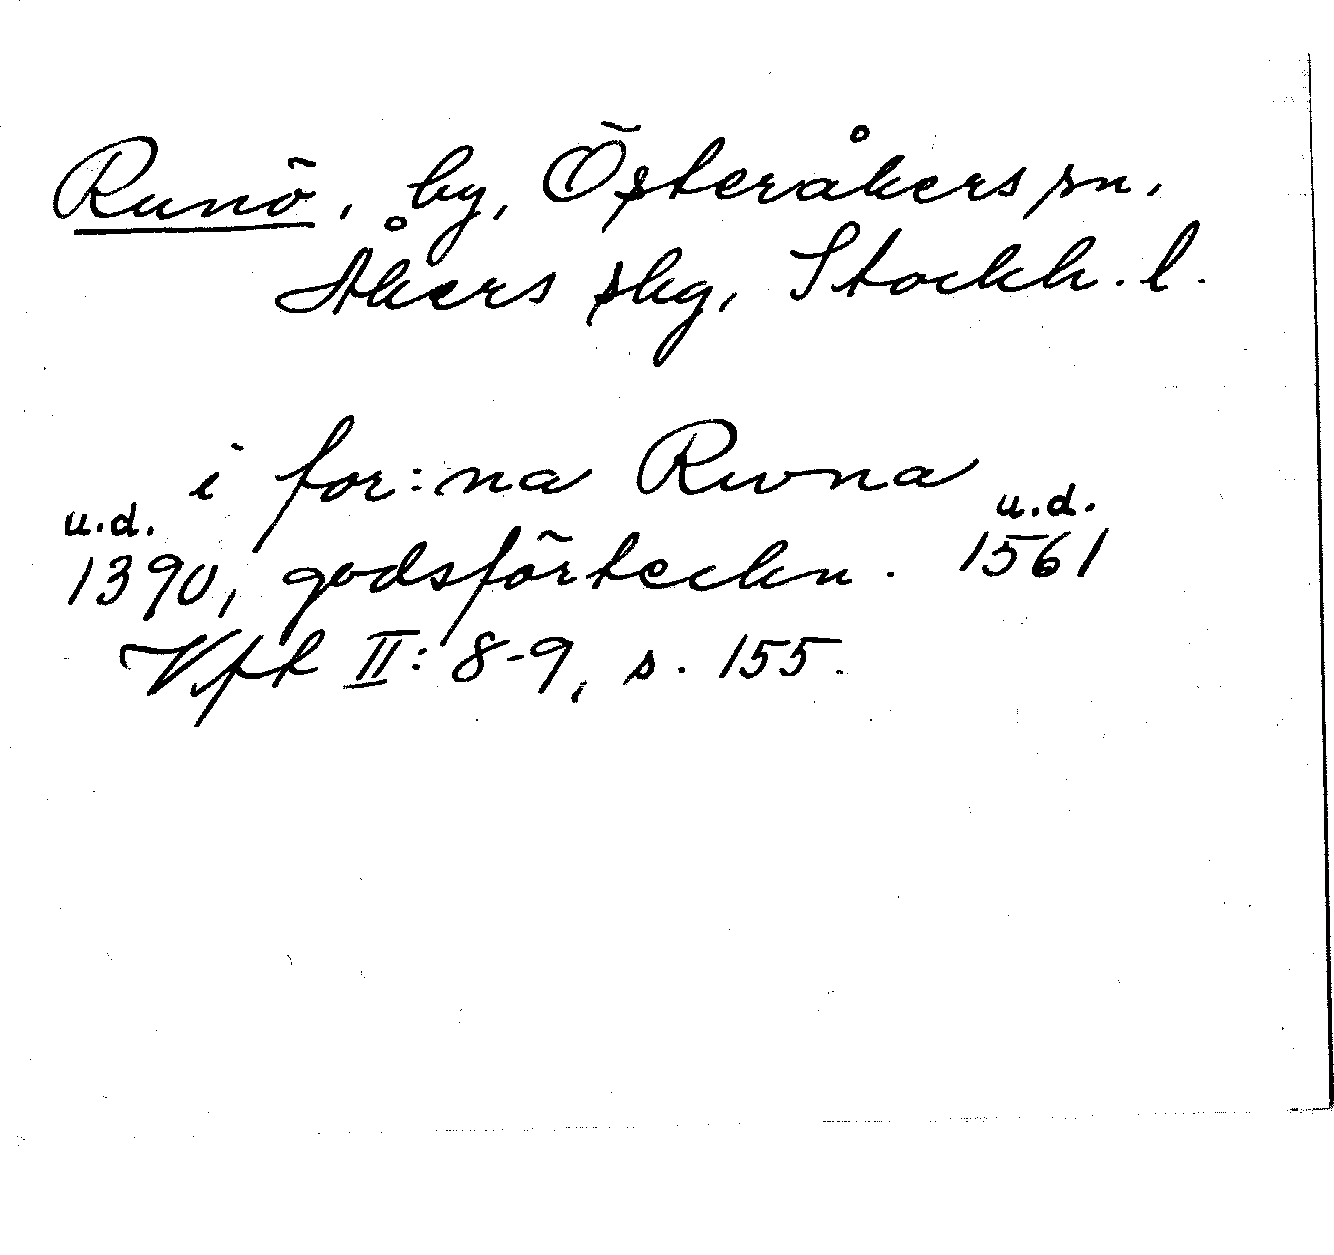 Runö, by, Österåkers sn.
Åkers skg, Stockh. l.
i for:na Rwna
u.d. u.d.
1390, godsförteckn. 1561
Vfk II: 8-9, s. 155.